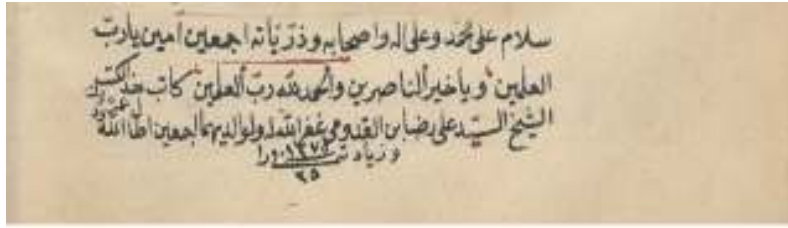 سلام على محمد وعلى اله واصحابه وذرياته اجمعين امين يا رب
العلمين و يا خير الناصرين والحمد لله رب العلمين كاتب هذا الكتب
الشيخ السيد على رضا بن القدومى غفر الله له ولوالديهما اجمعين اطا الله عمره
وزيادته
٢٥